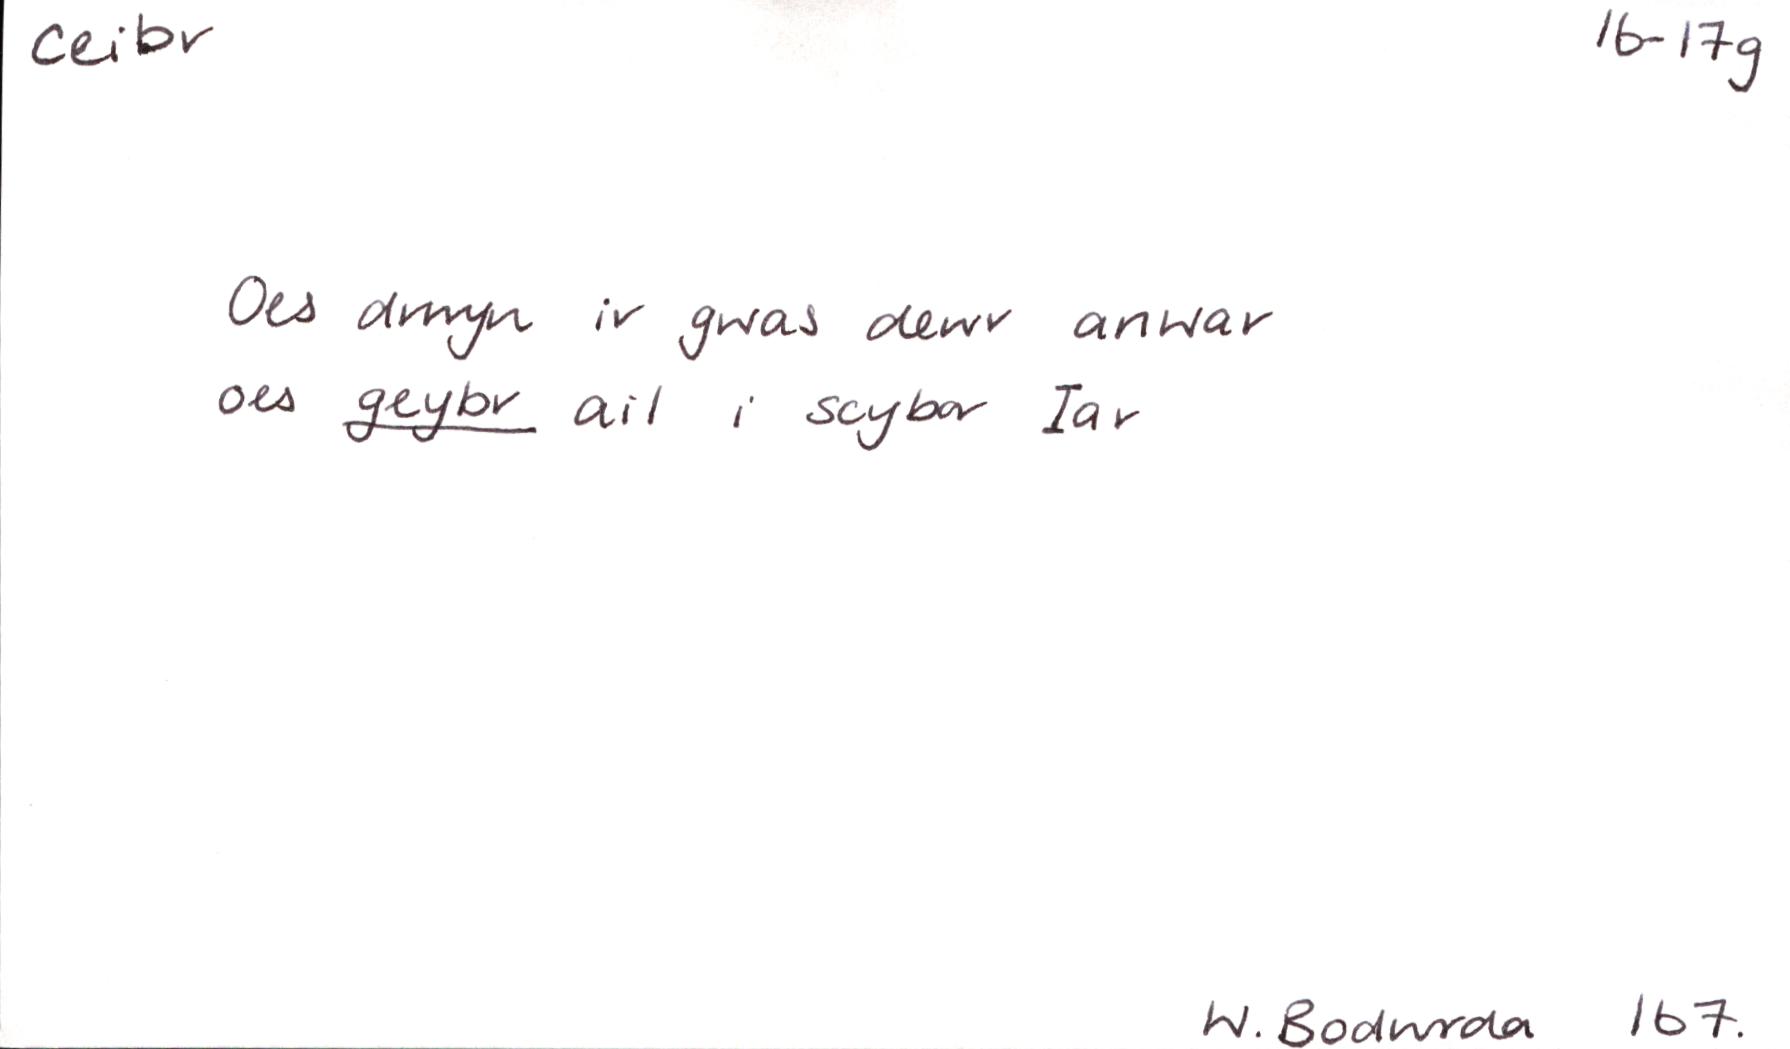 ceibr
16-17g
Oes drwyn ir gwas dewr anwar
oes geybr ail i scybor Iar
W. Bodwrda 167.